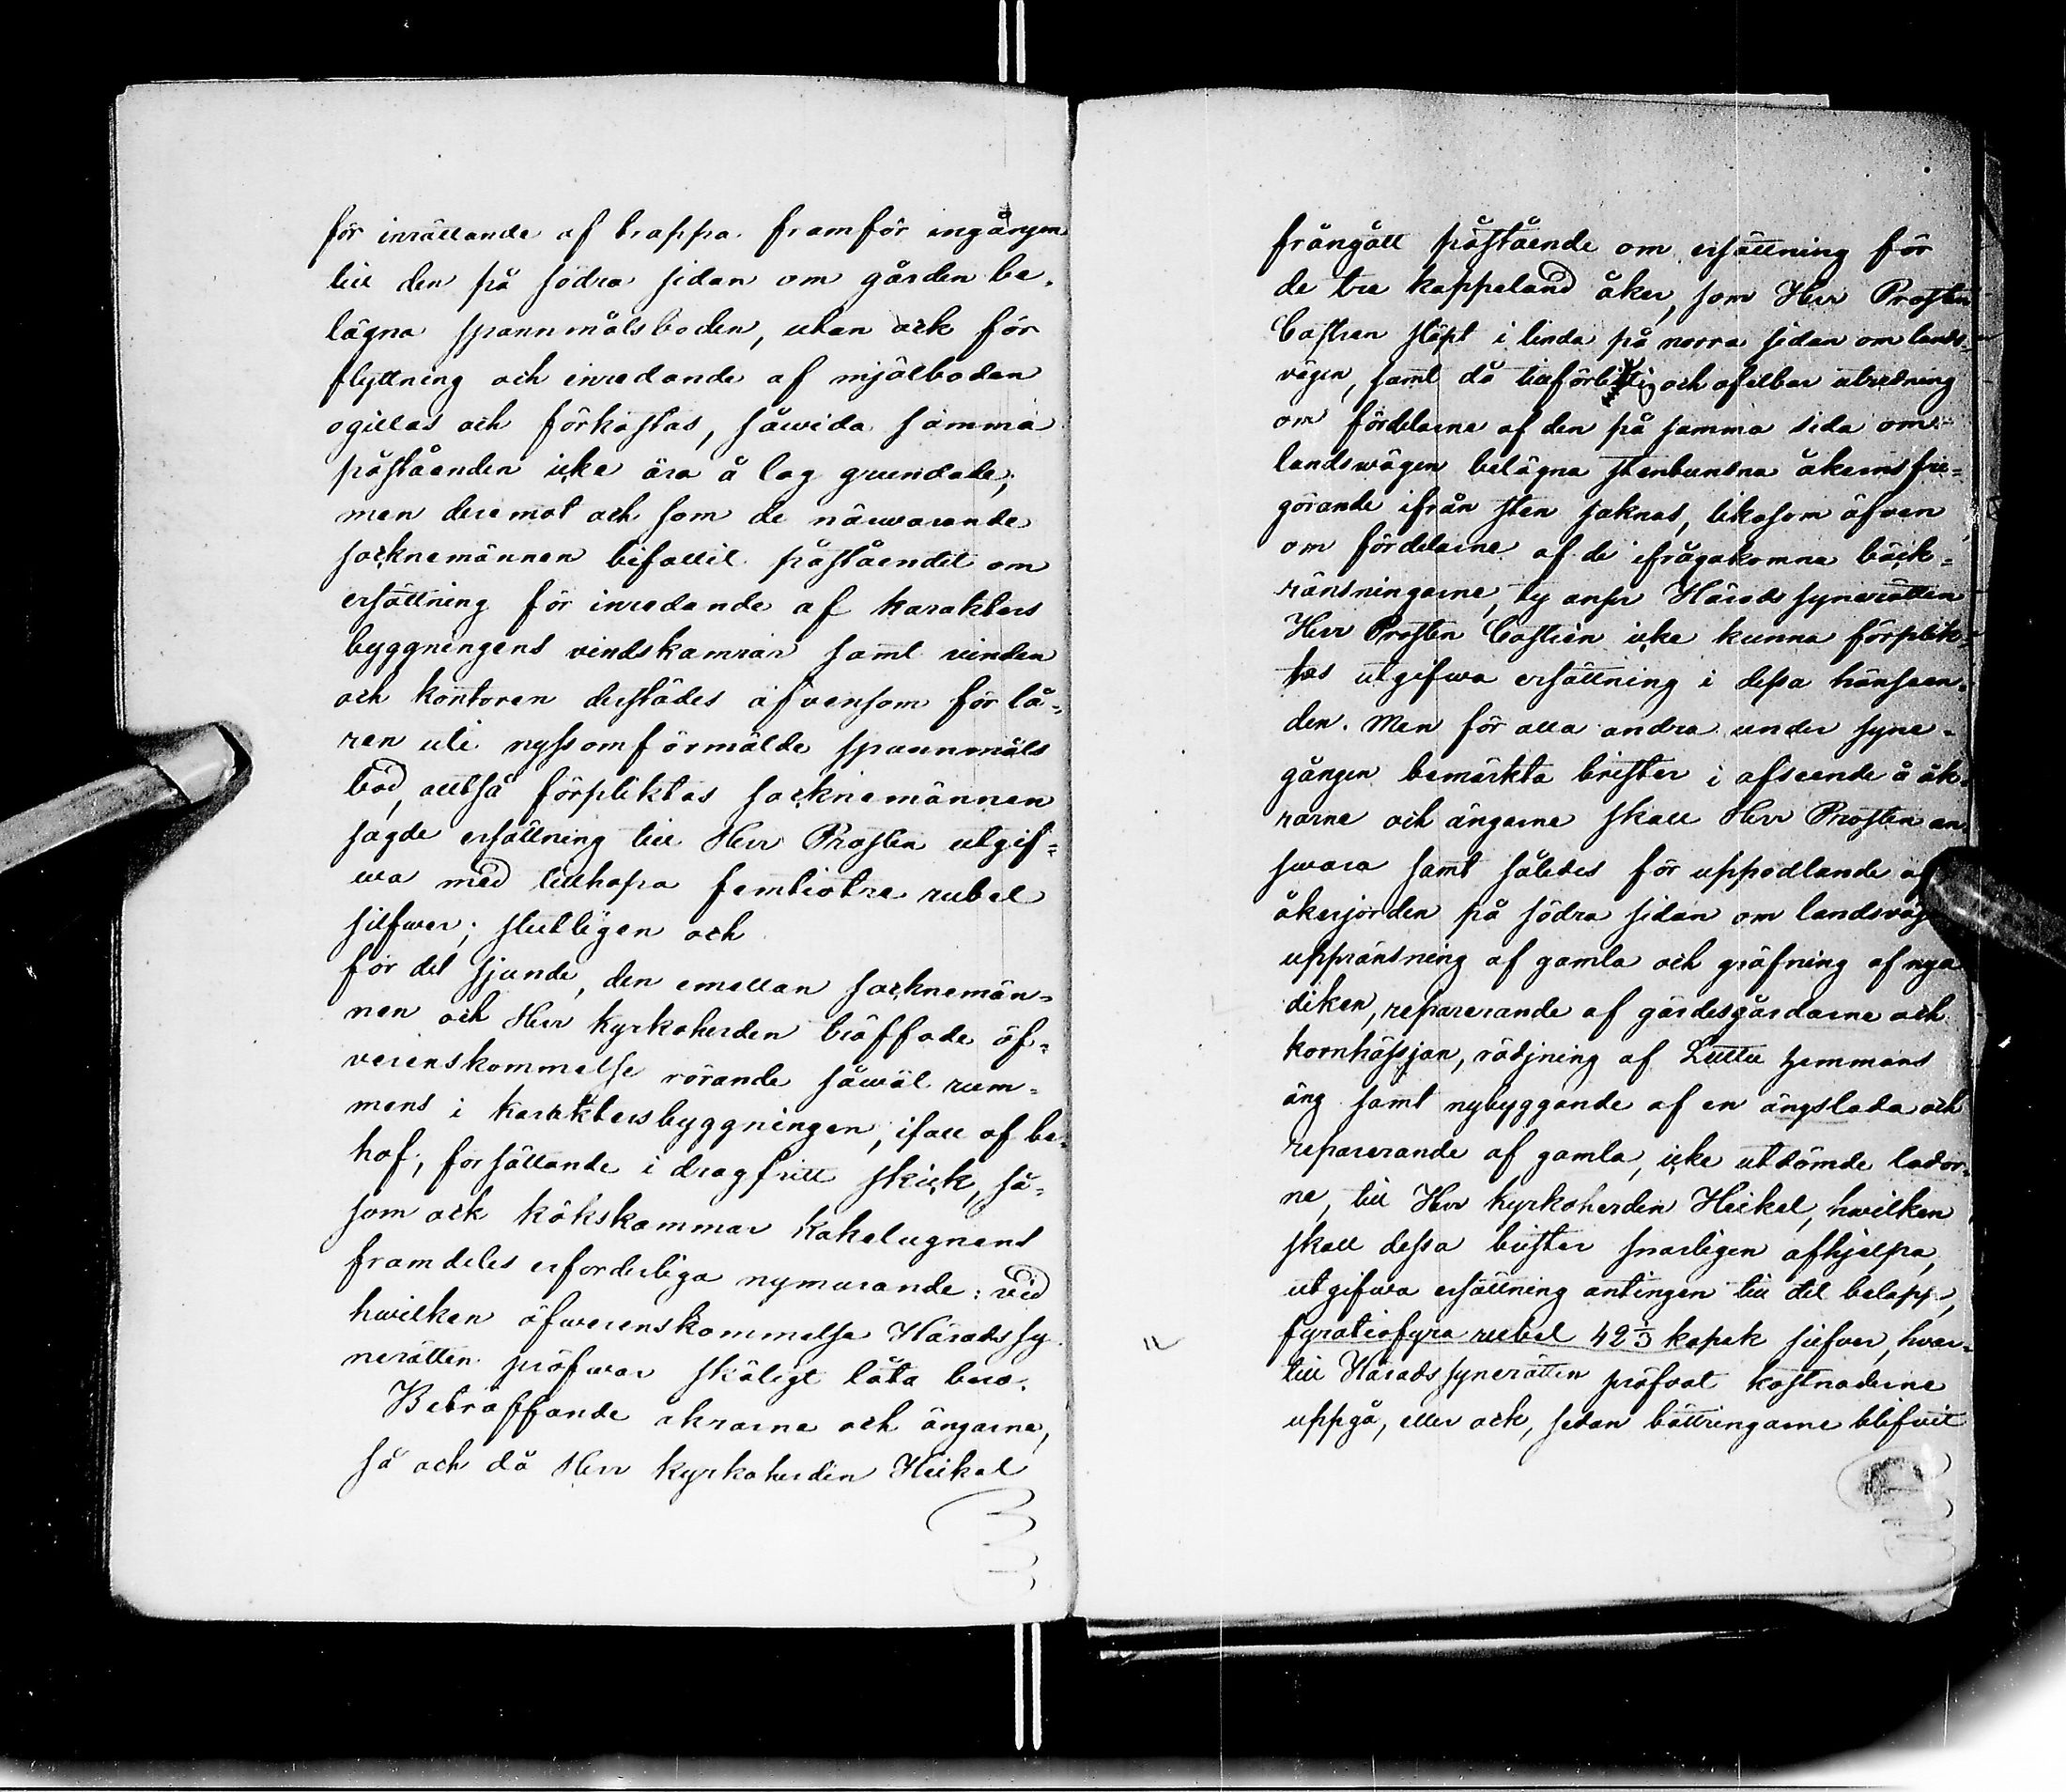 för inrättande af trappa framför ingången
till den på södra sidan om gården be-
lägna spannmålsboden, utan ock för
flyttning och inredande af mjölboden
ogillas och förkastas, såwida samma
påståenden icke ära å lag grundade;
men deremot och som de närwarande
socknemännen bifallit påståendet om
ersättning för inredande af karakters
byggningens vindskamrar samt vinden
och kontoren derstädes äfvensom för lå-
ren uti nyssomförmälde spannmåls
bod, alltså förpliktas socknemännen
sagde ersättning till Herr Prosten utgif-
wa med tillhopa femtiotre rubel
silfwer; slutligen och
för det sjunde, den emellan socknemän-
nen och Herr Kyrkoherden träffade öf-
verenskommelse rörande såwäl rum-
mens i karaktersbyggningen, ifall af be-
hof, försättande i dragfritt skick, så-
som ock kökskammar kakelugnens
framdeles erforderliga nymurande: vid
hwilken öfwerenskommelse Häradssy
nerätten pröfwar skäligt låta bero.
Beträffande åkrarne och ängarne,
så och då Herr Kyrkoherden Heikel
frångått påstående om ersättning för
de tre kappeland åker, som Herr Prosten
Castren släpt i linda på norra sidan om lands-
vägen, samt då tillförlitlig och ofelbar utredning
om fördelarne af den på samma sida om
landswägen belägna stenbundna åkerns fri-
görande ifrån sten saknas, likasom äfven
om fördelarne af de ifrågakomne bäck-
ränsningarne, ty anser Häradssynerätten
Herr Prosten Castrén icke kunna förplik-
tas utgifwa ersättning i dessa hänseen-
den. Men för alla andra under syne-
gången bemärkta brister i afseende å åk-
rarne och ängarne skall Herr Prosten an-
swara samt således för uppodlande af
åkerjorden på södra sidan om landsväg
uppränsning af gamla och gräfning af nya
diken, reparerande af gärdesgårdarne och
kornhässjan, rödjning af Luttu hemmans
äng samt nybyggande af en ängslada och
reparerande af gamla, icke utdömde lador-
ne, till Herr Kyrkoherden Heikel, hwilken
skall dessa brister snarligen afhjelpa,
utgifwa ersättning antingen till det belopp,
fyratiofyra rubel 42 2/3 kopek silfver, hvar-
till Häradssynerätten pröfvat kostnaderne
uppgå, eller ock, sedan bättringarne blifvit